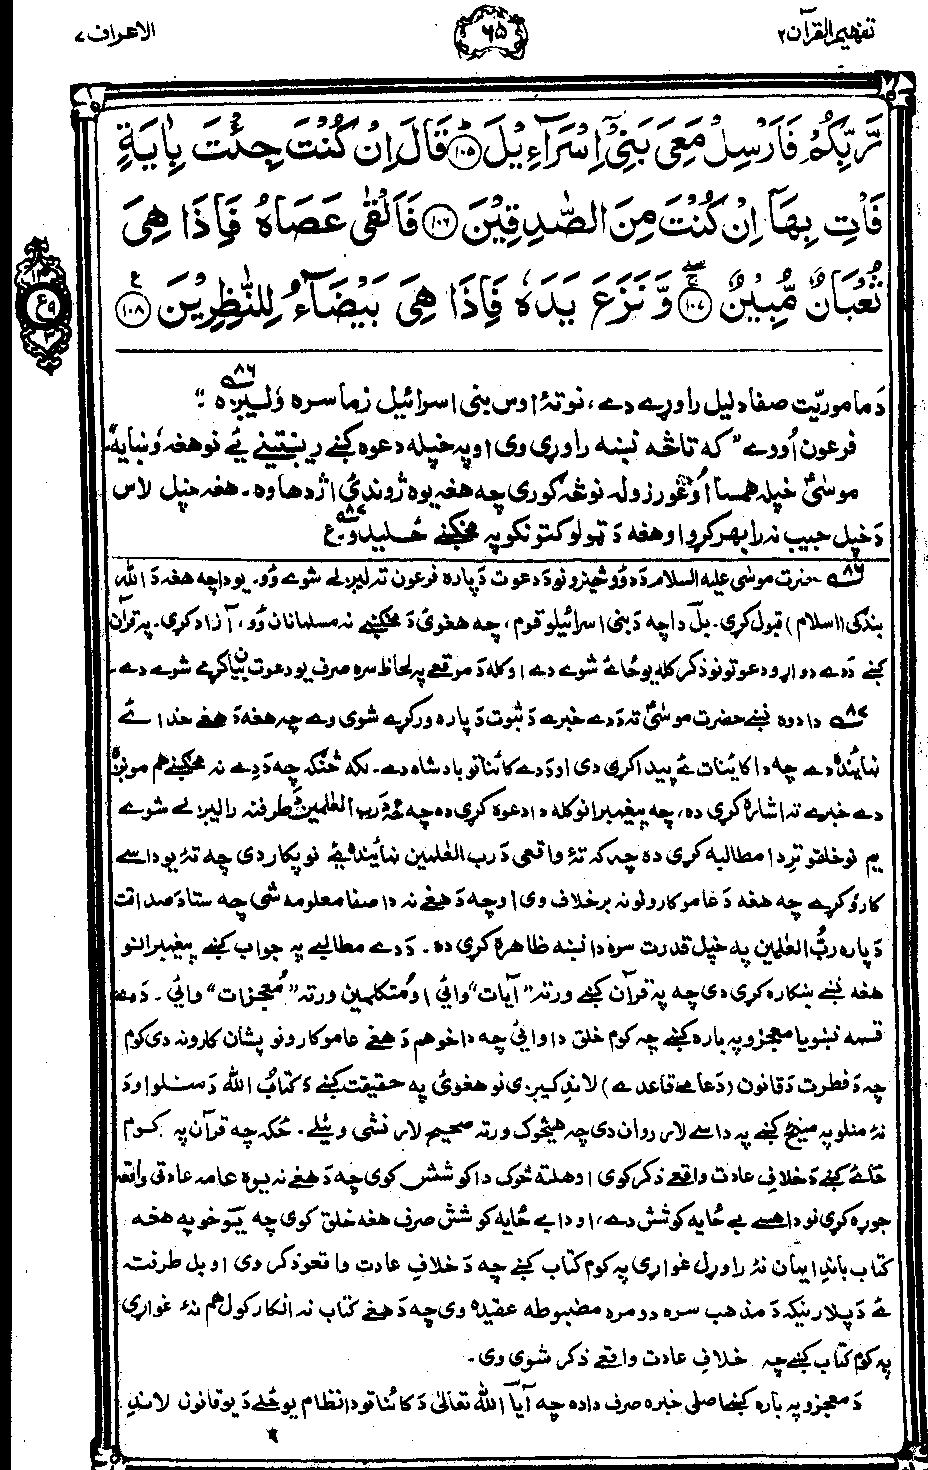 تفهیم القرآن ۲
۶۵
الاعراف ۷
رَّبِّكُمْ فَاَرْسِلْ مَعِیَ بَنِیْۤ اِسْرَآءِیْلَ ۱۰۵ قَالَ اِنْ كُنْتَ جِئْتَ بِاٰیَةٍ
فَاْتِ بِهَاۤ اِنْ كُنْتَ مِنَ الصّٰدِقِیْنَ ۱۰۶ فَاَلْقٰی عَصَاهُ فَاِذَا هِیَ
ثُعْبَانٌ مُّبِیْنٌ ۱۰۷ وَّ نَزَعَ یَدَهٗ فَاِذَا هِیَ بَیْضَآءُ لِلنّٰظِرِیْنَ ۱۰۸
دَ ماموریّت صفا دلیل راوړے دے، نو تۀ اوس بنی اسرائیل زما سره ولیږه ۸۶"
فرعون اُووے "که تا څه نښه راوړی وی او په خپله دعوه کښے رښتینے ئے نو هغه وښایه"
موسٰیؑ خپله همسا اُوغورزوله نو څۀ ګوری چه هغه یوه ژوندئ اژدها وه۔ هغه خپل لاس
دَ خپل جیب نه رابهر کړو او هغه دَ ټولو کتونکو په مخکښے ځلیدو۔ ۸۷ ع
۸۶ حضرت موسٰی علیه السلام دَ دوو څیزونو دَ دعوت دَپاره فرعون ته لیږلے شوے وو۔ یو دا چه هغه دَ الله
بندګی (اسلام) قبول کړی۔ بل دا چه دَ بنی اسرائیلو قوم، چه هغوی دَ مخکښے نه مسلمانان وو، آزاد کړی۔ په قرآن
کښے دَ دے دواړو دعوتونو ذکر کله یو ځائے شوے دے او کله دَ موقعے په لحاظ سره صرف یو دعوت بیان کړے شوے دے۔
۸۷ دا دوه نښے حضرت موسٰیؑ ته دَ دے خبرے دَ ثبوت دَپاره ورکړے شوی وے چه هغه دَ هغے خدائے
نمائنده دے چه دا کائنات ئے پیدا کړی دی او دَ دے کائناتو بادشاه دے۔ لکه څنګه چه دَ دے نه مخکښے هم مونږ
دے خبرے ته اشاره کړی ده، چه پیغمبرانو کله دا دعوه کړی ده چه مونږ دَ رب العٰلمین دَ طرفنه رالیږلے شوے
یم نو خلقو ترِ دا مطالبه کړی ده چه که تۀ واقعی دَ رب العٰلمین نمائینده ئے نو پکار دی چه تۀ یو داسے
کار وکړے چه هغه دَ عامو کارونو نه برخلاف وی او چه دَ هغے نه دا صفا معلومه شی چه ستا دَ صداقت
دَپاره ربُّ العٰلمین په خپل قدرت سره دا نښه ظاهره کړی ده۔ دَ دے مطالبے په جواب کښے پیغمبرانو
هغه نښے ښکاره کړی دی چه په قرآن کښے ورته "آیات" وائی او مُتکلمین ورته "مُعجزات" وائی۔ دَ دے
قسمه نښو یا معجزو په باره کښے چه کوم خلق دا وائی چه دا خو هم دَ هغے عامو کارونو پشان کارونه دی کوم
چه دَ فطرت دَ قانون (دَ عامے قاعدے) لاندے کیږی نو هغوئ په حقیقت کښے دَ کتابُ الله دَ منلو او دَ
نۀ منلو په مینځ کښے په داسے لار روان دی چه هیڅوک ورته صحیح لار نشی ویلے۔ ځکه چه قرآن په کوم
ځائے کښے دَ خلافِ عادت واقعے ذکر کوی او هلته څوک دا کوشش کوی چه دَ هغے نه یوه عامه عادتی واقعه
جوړه کړی نو دا هسے بے ځایه کوشش دے، او دا بے ځایه کوشش صرف هغه خلق کوی چه یو خو په هغه
کتاب باندِ ایمان نۀ راوړل غواړی په کوم کتاب کښے چه دَ خلافِ عادت واقعو ذکر وی او بل طرفته
ئے دَ پلار نیکه دَ مذهب سره دومره مضبوطه عقیده وی چه دَ هغے کتاب نه انکار کول هم نۀ غواړی
په کوم کتاب کښے چه خلافِ عادت واقعے ذکر شوی وی۔
دَ معجزو په باره کښے اصلی خبره صرف دا ده چه آیا الله تعالٰی دَ کائناتو دا نظام یو ځلے دَ یو قانون لاندِ